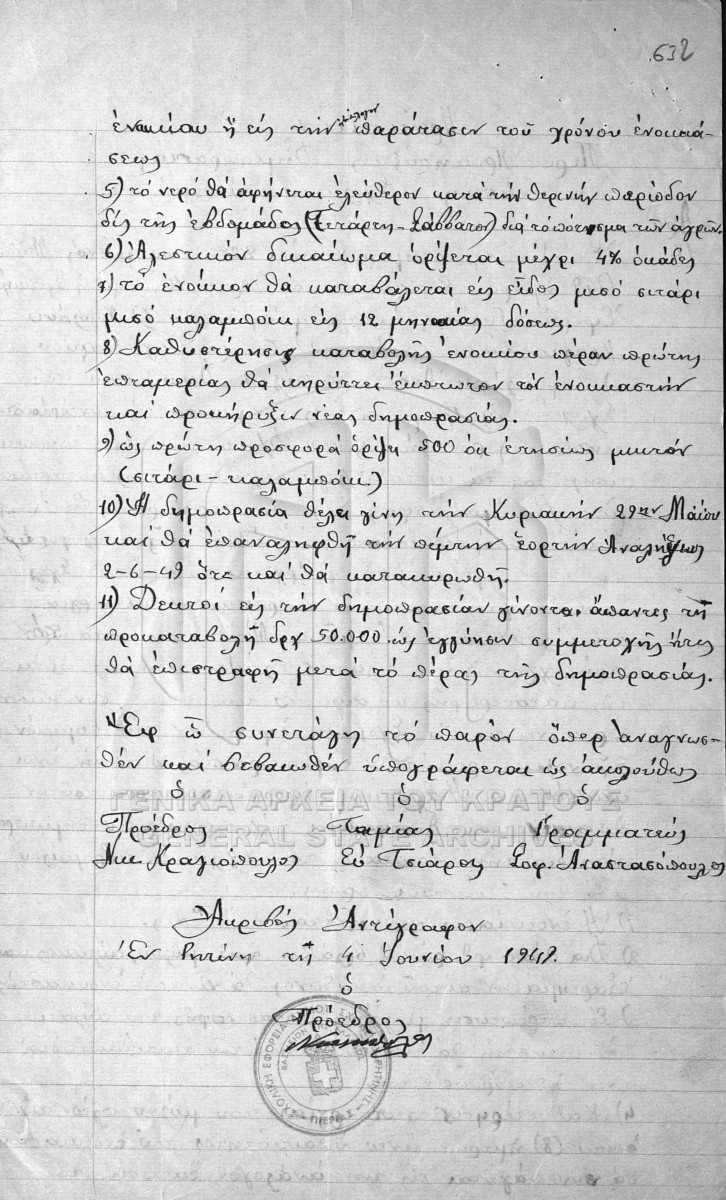 632
ἐνοικίου ἤ εἰς τήν ἀνάλογον παράτασιν τοῦ χρόνου ἐνοικιά-
σεως
5) τό νερό θά ἀφήνεται ἐλεύθερον κατά τήν θερινήν περίοδον
δίς τῆς ἑβδομάδος (Τετάρτη - Σάββατον) διά τό πότισμα τῶν ἀγρῶν.
6) Ἀλεστικόν δικαίωμα ὁρίζεται μέχρι 4% ὀκάδες
7) τό ἐνοίκιον θά καταβάλεται εἰς εἶδος μισό σιτάρι
μισό καλαμπόκι εἰς 12 μηνιαίας δόσεις.
8) Καθυστέρησις καταβολῆς ἐνοικίου πέραν πρώτης
ἑπταμερίας θά κηρύττει ἔκπτωτον τόν ἐνοικιαστήν
καί προκήρυξιν νέας δημοπρασίας.
9) ὡς πρώτη προσφορά ὁρίζη 500 οκ ἐτησίως μικτόν
(σιτάρι - καλαμπόκι)
10) Ἡ δημοπρασία θέλει γίνη τήν Κυριακήν 29ην Μαΐου
καί θά ἐπαναληφθῆ τήν πέμτην ἑορτήν Ἀναλήψεως
2-6-49 ὅτε καί θά κατακυρωθῆ.
11) Δεκτοί εἰς τήν δημοπρασίαν γίνονται ἅπαντες τῆ
προκαταβολῆ δρχ 50.000 ὡς ἐγγύησιν συμμετοχῆς ἥτις
θά ἐπιστραφῆ μετά τό πέρας τῆς δημοπρασίας.
Ἐφ ᾧ συνετάγη τό παρόν ὅπερ ἀναγνωσ-
θέν καί βεβαιωθέν ὑπογράφεται ὡς ἀκολούθως
ὁ ὁ ὁ
Πρόεδρος Ταμίας Γραμματεύς
Νικ Κραγιόπουλος Εὐ Τσιάρας Σοφ. Ἀναστασόπουλος
ΓΕΝΙΚΑ ΑΡΧΕΙΑ ΤΟΥ ΚΡΑΤΟΥΣ
GENERAL STATE ARCHIVES
Ἀκριβές Ἀντίγραφον
Ἐν Ρητίνη τῆ 4 Ἰουνίου 1949.
ὁ
Πρόεδρος
ΣΧΟΛΙΚΗ ΕΦΟΡΕΙΑ ΡΗΤΙΝΗΣ - ΠΙΕΡΙΑΣ